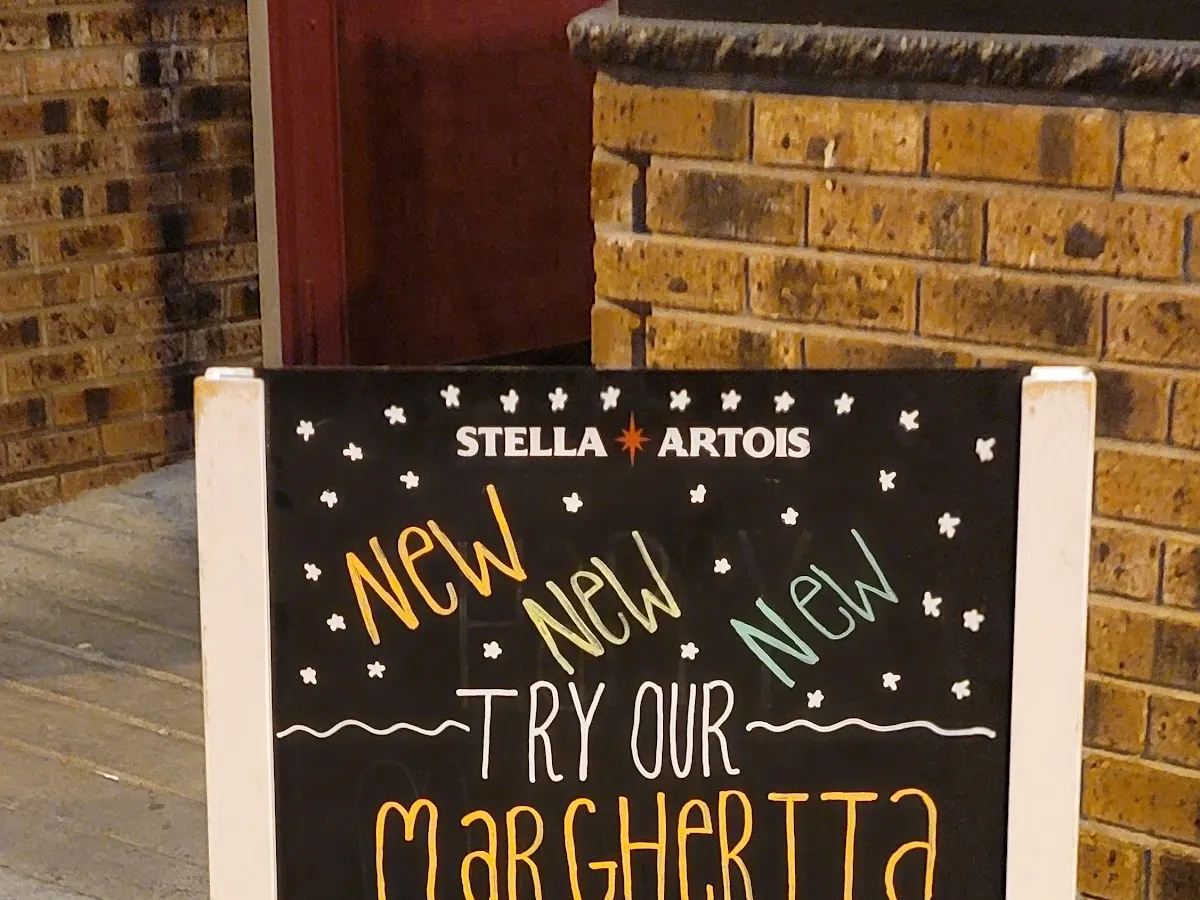 STELLA ARTOIS
New New New
TRY OUR
MaRGHeRITa